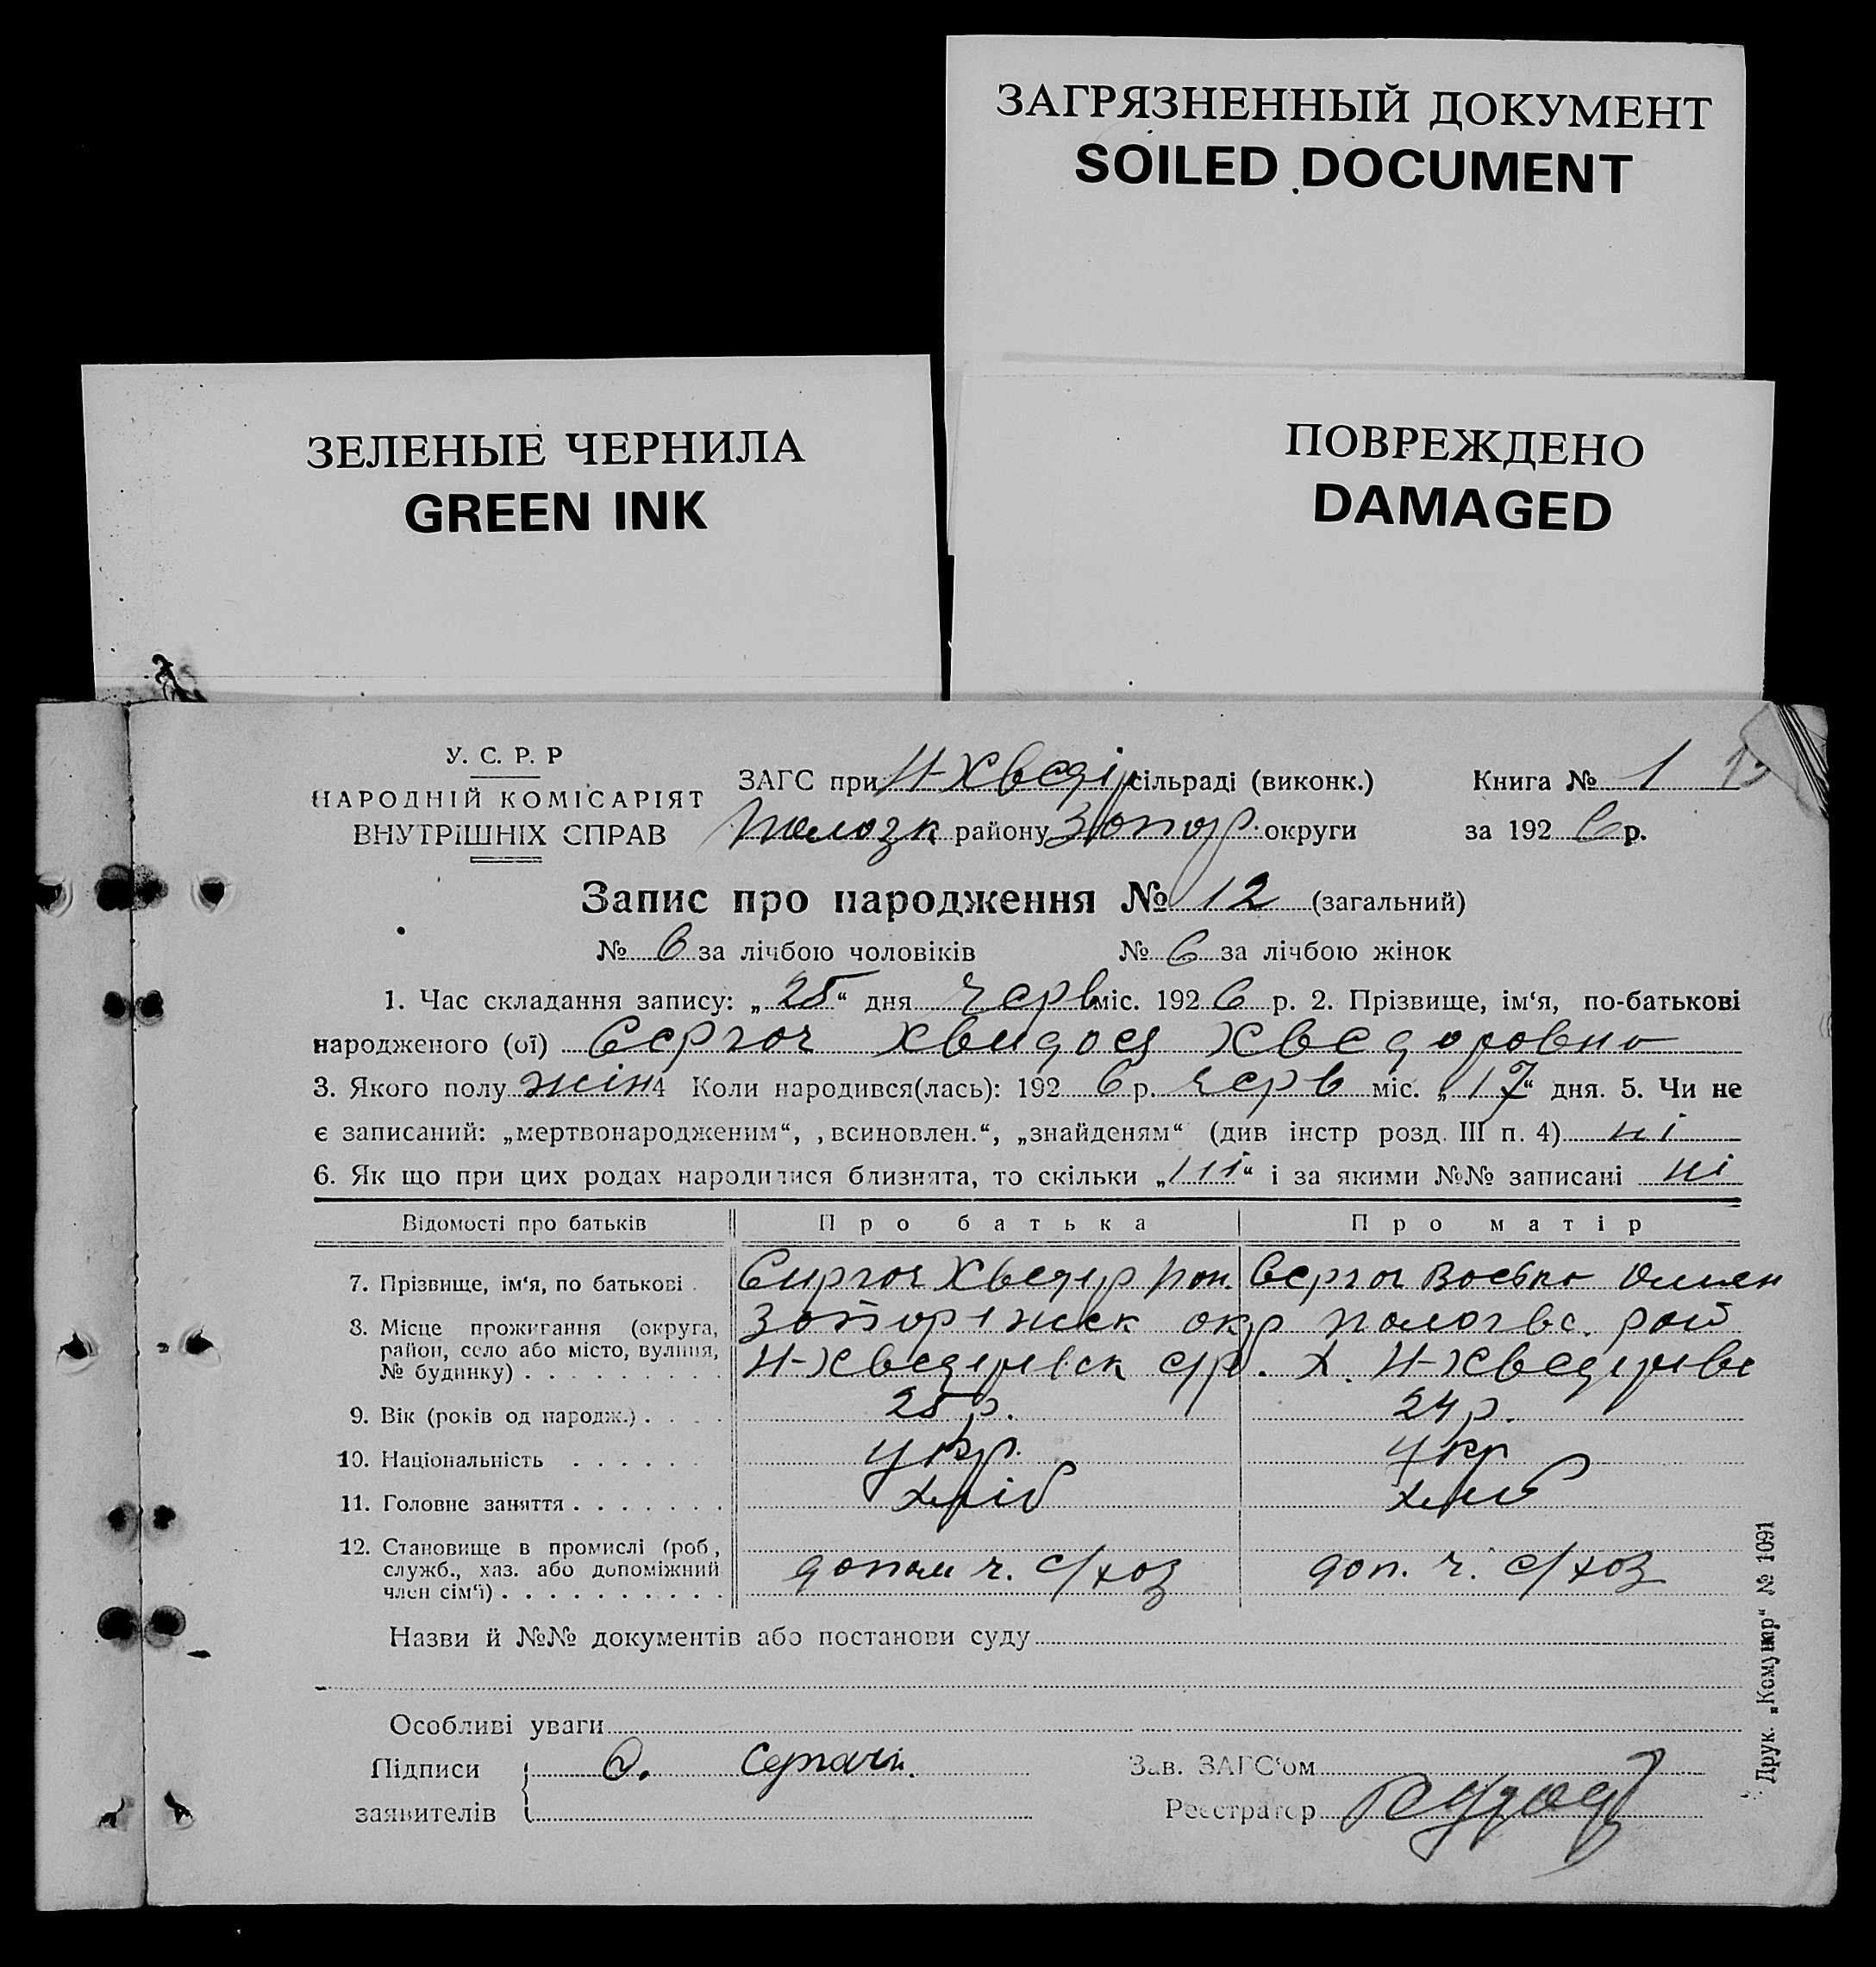 ЗАГРЯЗНЕННЫЙ ДОКУМЕНТ
SOILED DOCUMENT
ЗЕЛЕНЫЕ ЧЕРНИЛА
GREEN INK
ПОВРЕЖДЕНО
DAMAGED
У. С. Р. Р
НАРОДНІЙ КОМІСАРІЯТ
ВНУТРІШНІХ СПРАВ
ЗАГС при Н-Хведір сільраді (виконк.)
району Запор. округи
Книга № 1
за 192 6 р.
Запис про народження № 12 (загальний)
№ 6 за лічбою чоловіків № 6 за лічбою жінок
1. Час складання запису: „ 25 “ дня Черв міс. 192 6 р. 2. Прізвище, ім‘я, по-батькові
народженого (ої) Сергач Хвидося Хведоровна
3. Якого полу жін 4 Коли народився(лась): 192 6 р. Черв міс. „ 17 “ дня. 5. Чи не
є записаний: „мертвонародженим“, „всиновлен.“, „знайденям“ (див інстр розд. III п. 4) ні
6. Як що при цих родах народилися близнята, то скільки „ ні “ і за якими №№ записані ні
Відомості про батьків Про батька Про матір
7. Прізвище, ім‘я, по батькові . Сиргач Хведір Сергач
8. Місце прожигання (округа, Запоріжск окр район, село або місто, вулиця,
№ будинку) . . . . . . . . . Н-Хведірівск с/р. х. Н-Хведірівка
9. Вік (років од народж.) . . . . 25 р. 24 р.
10. Національність . . . . . . укр. укр
11. Головне заняття . . . . . . . хліб хліб
12. Становище в промислі (роб.,
служб., хаз. або допоміжний допом ч. с/хоз доп. ч. с/хоз
член сім‘ї) . . . . . . . . . .
Назви й №№ документів або постанови суду
Особливі уваги
Підписи
заявителів
Зав. ЗАГС‘ом
Реєстратор
Друк. „Комунар“ № 1091